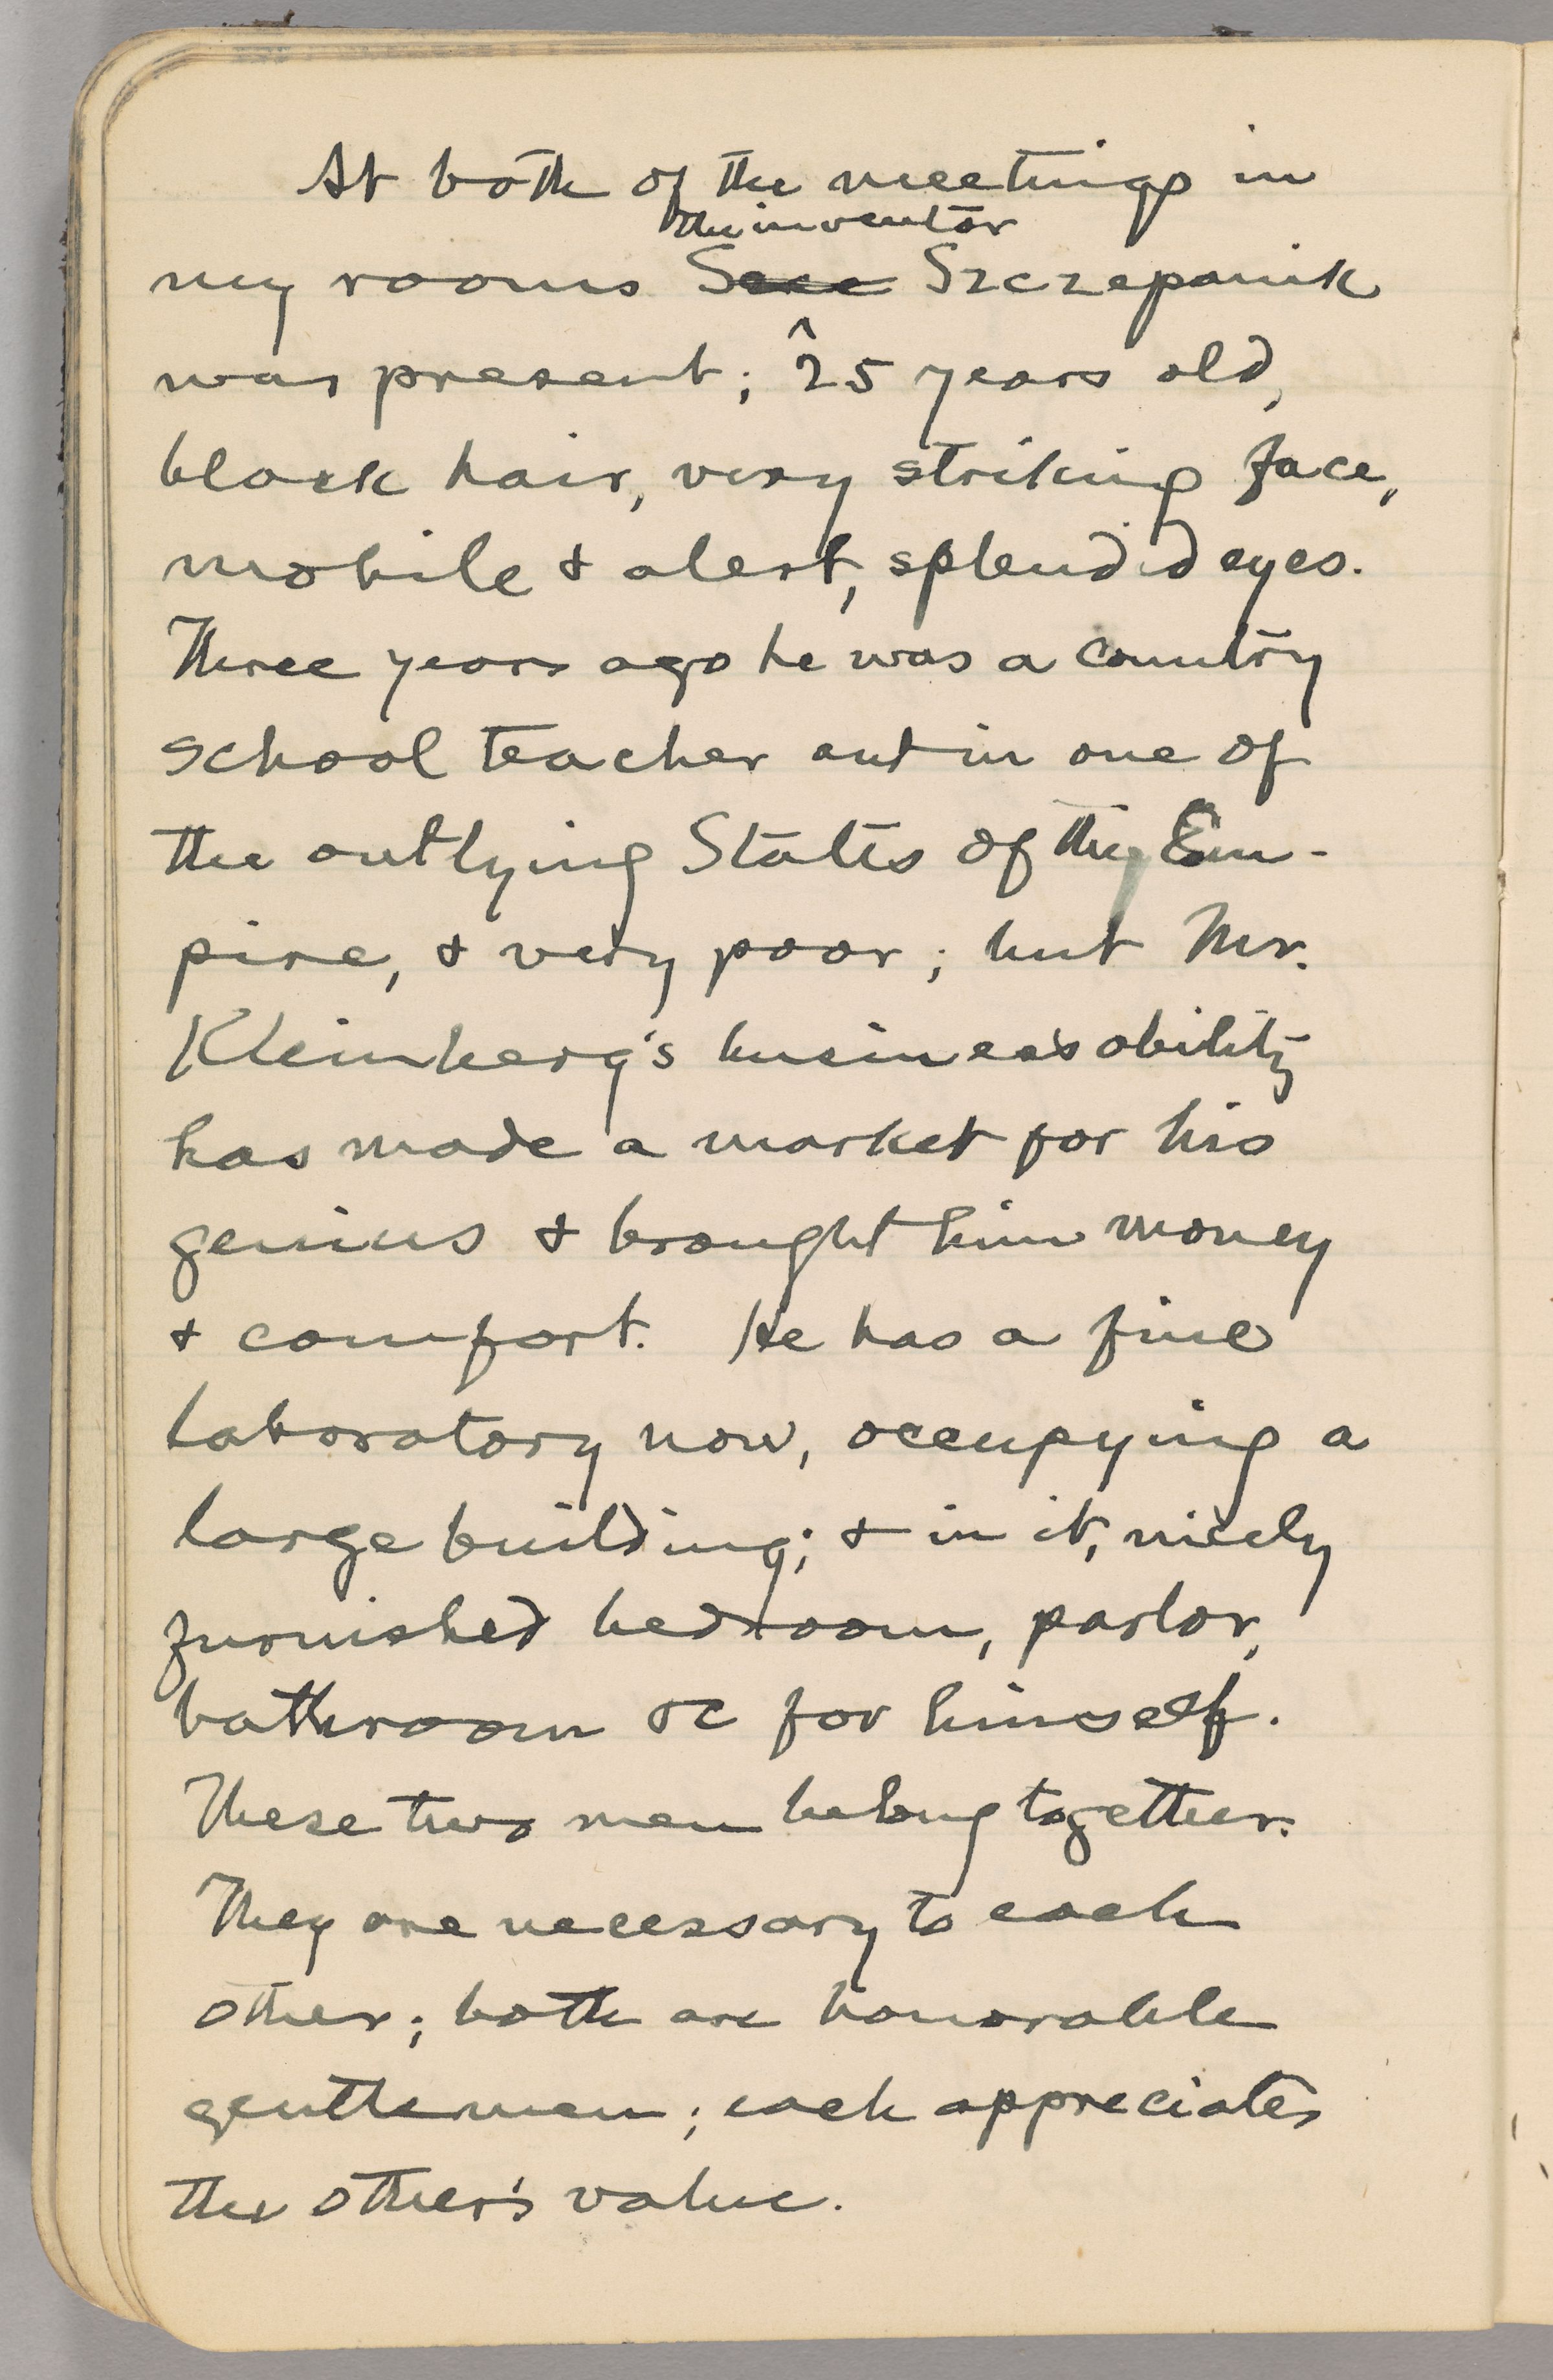 At both of the meetings in
the inventor
my rooms Szcz Szczepanik
was present; ^25 years old,
black hair, very striking face,
mobile & alert, splendid eyes.
Three years ago he was a country
school teacher out in one of
the outlying States of the Em-
pire, & very poor; but Mr.
Kleinberg's business ability
has made a market for his
genius & brought him money
& comfort. He has a fine
laboratory now, occupying a
large building; & in it, nicely
furnished bedroom, parlor,
bathroom &c for himself.
These two men belong together.
They are necessary to each
other; both are honorable
gentlemen; each appreciates
the other's value.